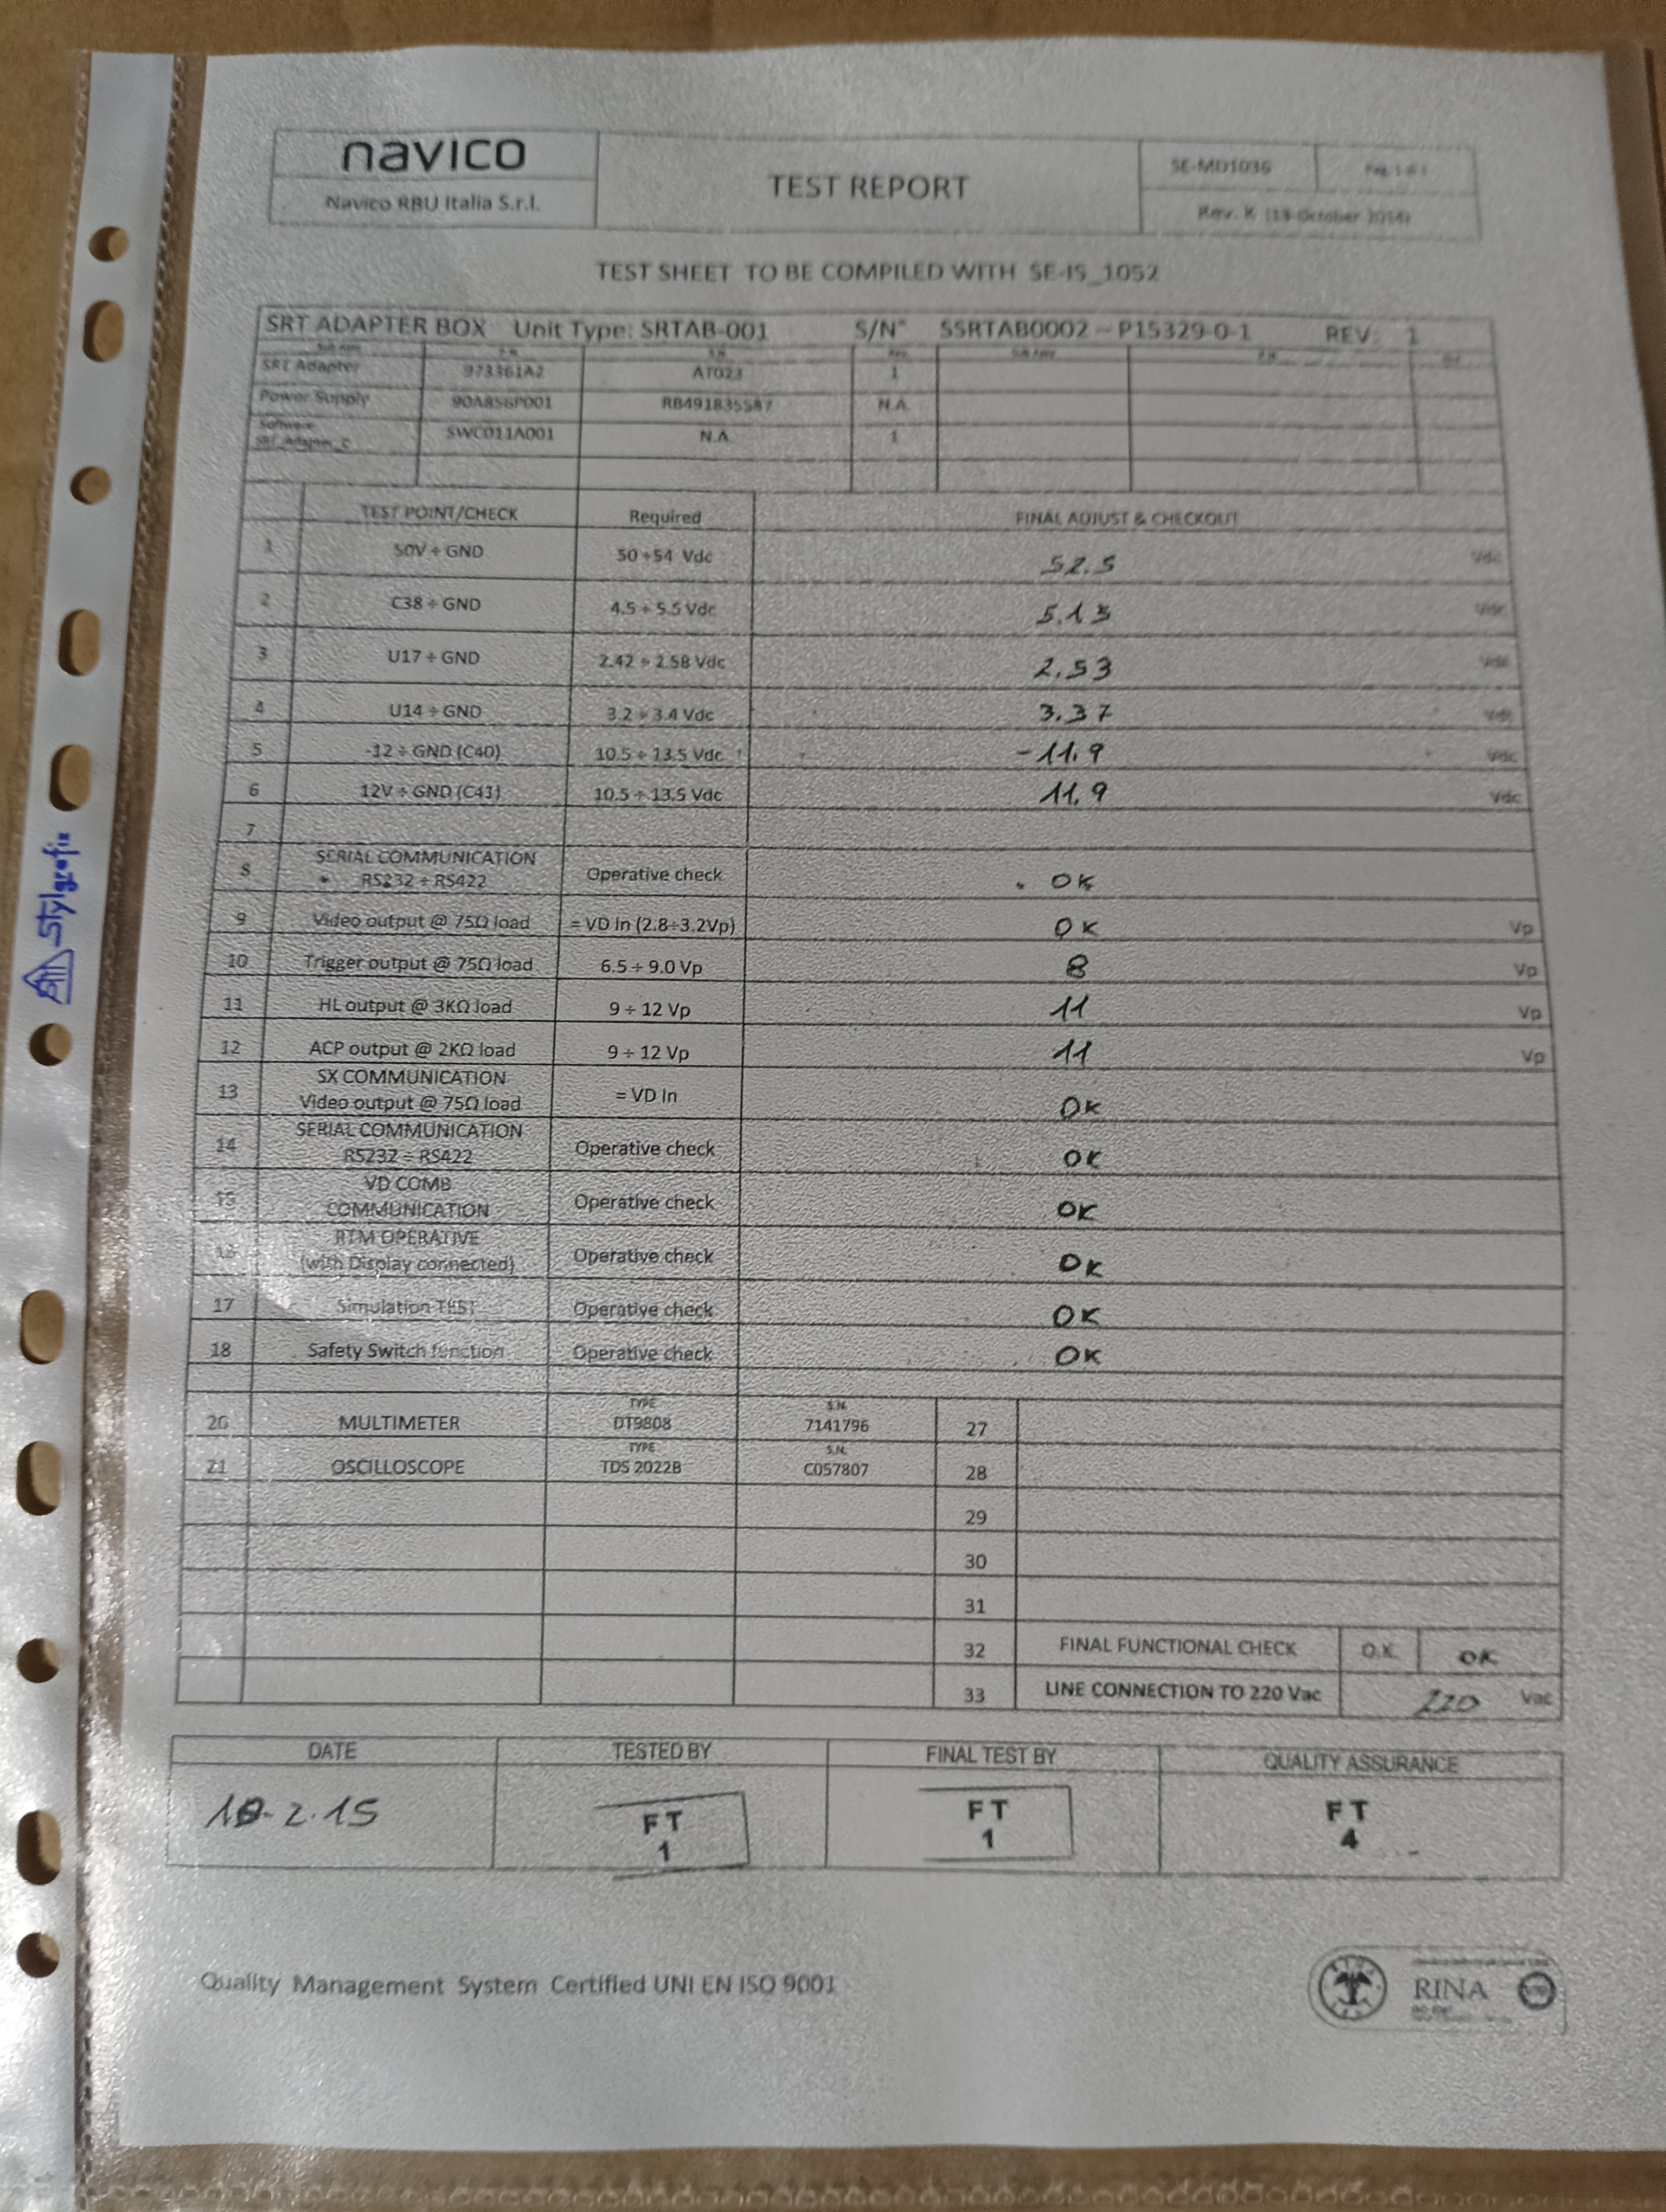 navico
Navico RBU Italia S.r.l.
TEST REPORT
SE-MD1036
Pag. 1 di 1
Rev. K (13 October 2014)
TEST SHEET TO BE COMPILED WITH SE-IS_1052
SRT ADAPTER BOX Unit Type: SRTAB-001 S/N° SSRTAB0002 – P15329-0-1 REV: 1
SRT Adapter 973361A2 AT023 1
Power Supply 90A856P001 RB491835587 N.A.
Software
SRT_Adapter_C SWC011A001 N.A. 1
TEST POINT/CHECK Required FINAL ADJUST & CHECKOUT
1 50V ÷ GND 50 ÷54 Vdc 52.5 Vdc
2 C38 ÷ GND 4.5 ÷ 5.5 Vdc 5.13 Vdc
3 U17 ÷ GND 2.42 ÷ 2.58 Vdc 2.53 Vdc
4 U14 ÷ GND 3.2 ÷ 3.4 Vdc 3.37 Vdc
5 -12 ÷ GND (C40) 10.5 ÷ 13.5 Vdc -11.9 Vdc
6 12V ÷ GND (C43) 10.5 ÷ 13.5 Vdc 11.9 Vdc
7
8 SERIAL COMMUNICATION
RS232 ÷ RS422 Operative check OK
9 Video output @ 75Ω load = VD In (2.8÷3.2Vp) OK Vp
10 Trigger output @ 75Ω load 6.5 ÷ 9.0 Vp 8 Vp
11 HL output @ 3KΩ load 9 ÷ 12 Vp 11 Vp
12 ACP output @ 2KΩ load 9 ÷ 12 Vp 11 Vp
13 SX COMMUNICATION
Video output @ 75Ω load = VD In OK
14 SERIAL COMMUNICATION
RS232 ÷ RS422 Operative check OK
15 VD COMB
COMMUNICATION Operative check OK
16 RTM OPERATIVE
(with Display connected) Operative check OK
17 Simulation TEST Operative check OK
18 Safety Switch function Operative check OK
TYPE S.N.
20 MULTIMETER DT9808 7141796 27
TYPE S.N.
21 OSCILLOSCOPE TDS 2022B C057807 28
29
30
31
32 FINAL FUNCTIONAL CHECK O.K. OK
33 LINE CONNECTION TO 220 Vac 220 Vac
DATE TESTED BY FINAL TEST BY QUALITY ASSURANCE
10-2-15
FT FT FT
1 1 4
Quality Management System Certified UNI EN ISO 9001
RINA
Stylgrafix